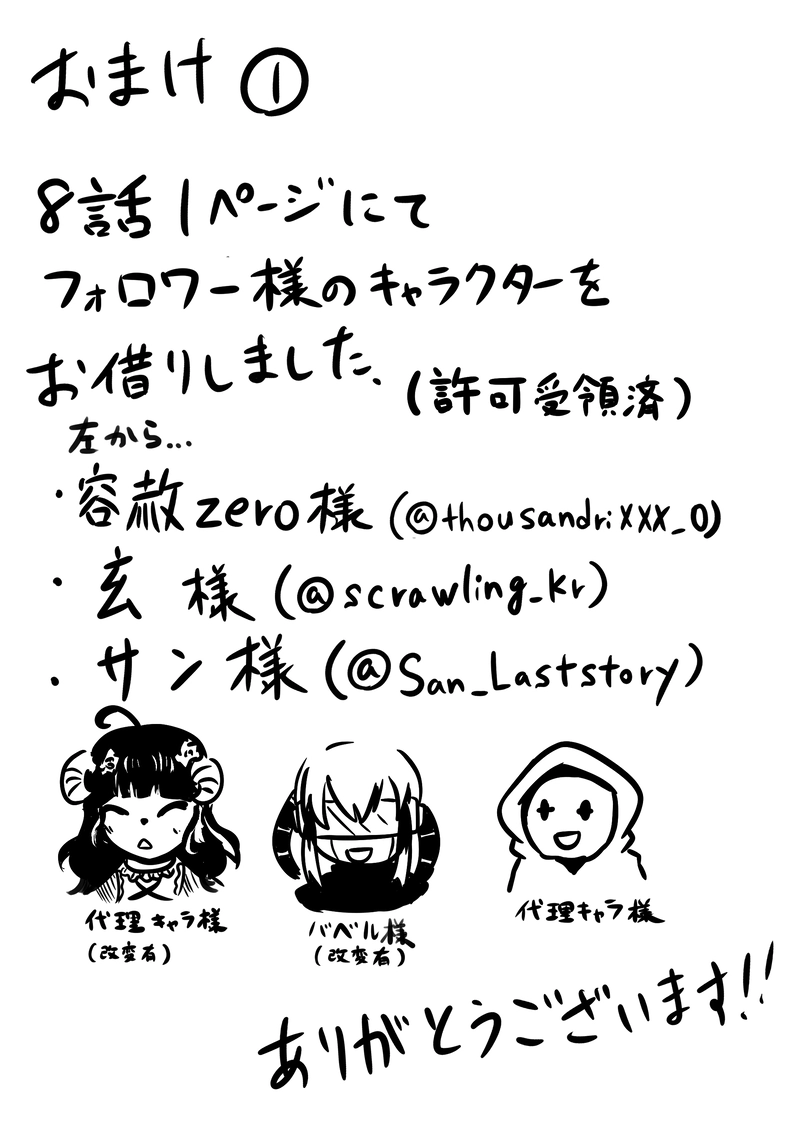 おまけ①
8話1ページにて
フォロワー様のキャラクターを
お借りしました、(許可受領済)
左から…
・容赦zero様(@thousandriXXX_0)
・玄 様(@scrawling_kr)
・サン様(@San_Laststory)
代理キャラ様
(改変有)
バベル様
(改変有)
代理キャラ様
ありがとうございます!!